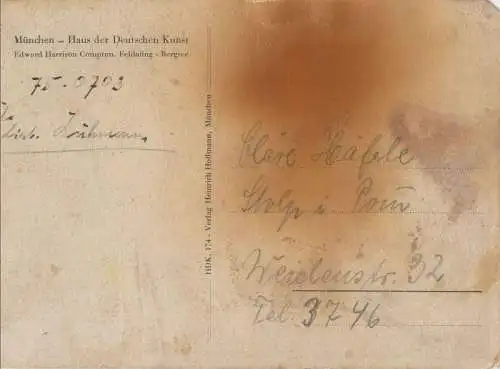 München – Haus der Deutschen Kunst
Edward Harrison Compton, Feldafing - Bergsee
75-0703
HDK. 174 - Verlag Heinrich Hoffmann, München
Cläre Häfele
Stolp i. Pom
Weidenstr. 32
Tel. 3746